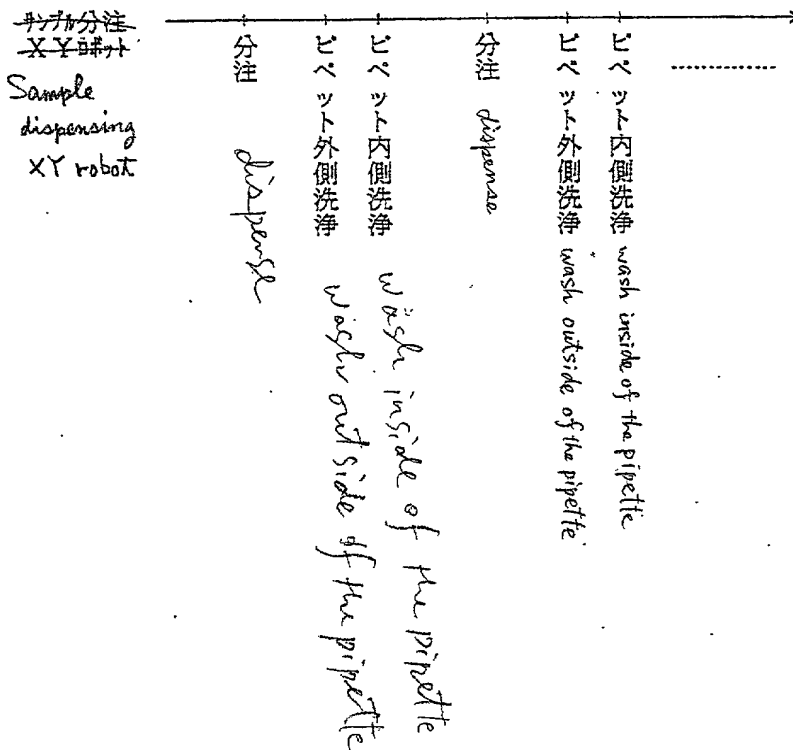 サンプル分注
XYロボット
Sample
dispensing
XY robot
分注
dispense
ピペット外側洗浄
wash outside of the pipette
ピペット内側洗浄
wash inside of the pipette
分注 dispense
ピペット外側洗浄 wash outside of the pipette
ピペット内側洗浄 wash inside of the pipette
..............